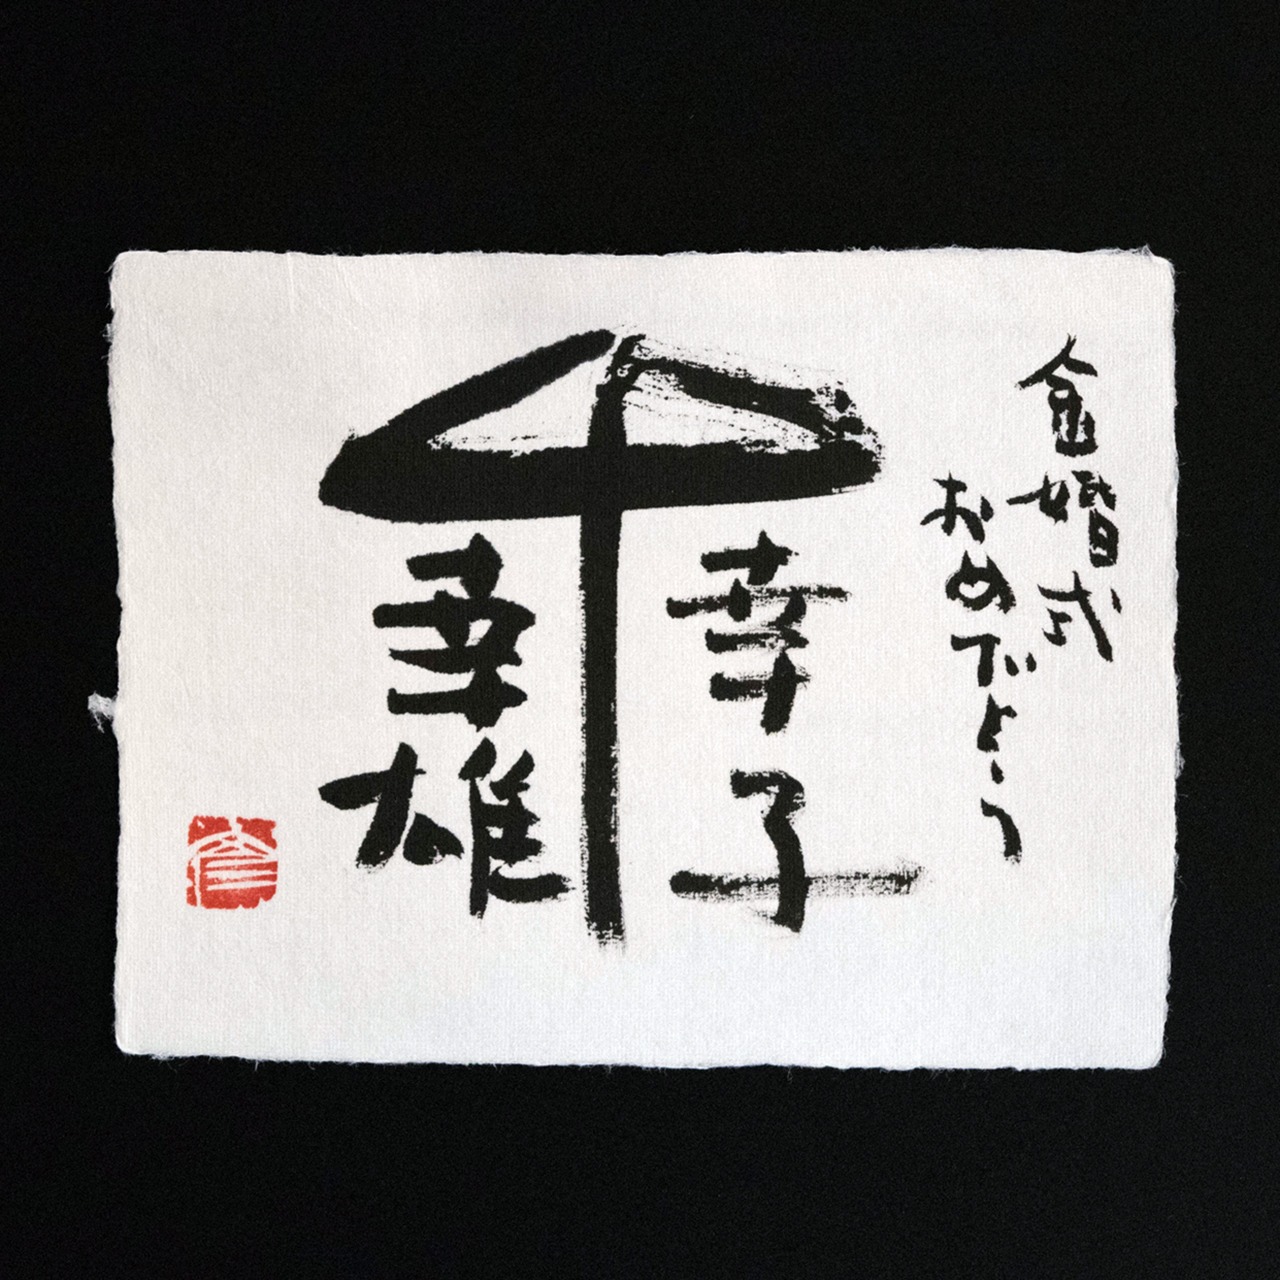 金婚式
おめでとう
幸子
幸雄